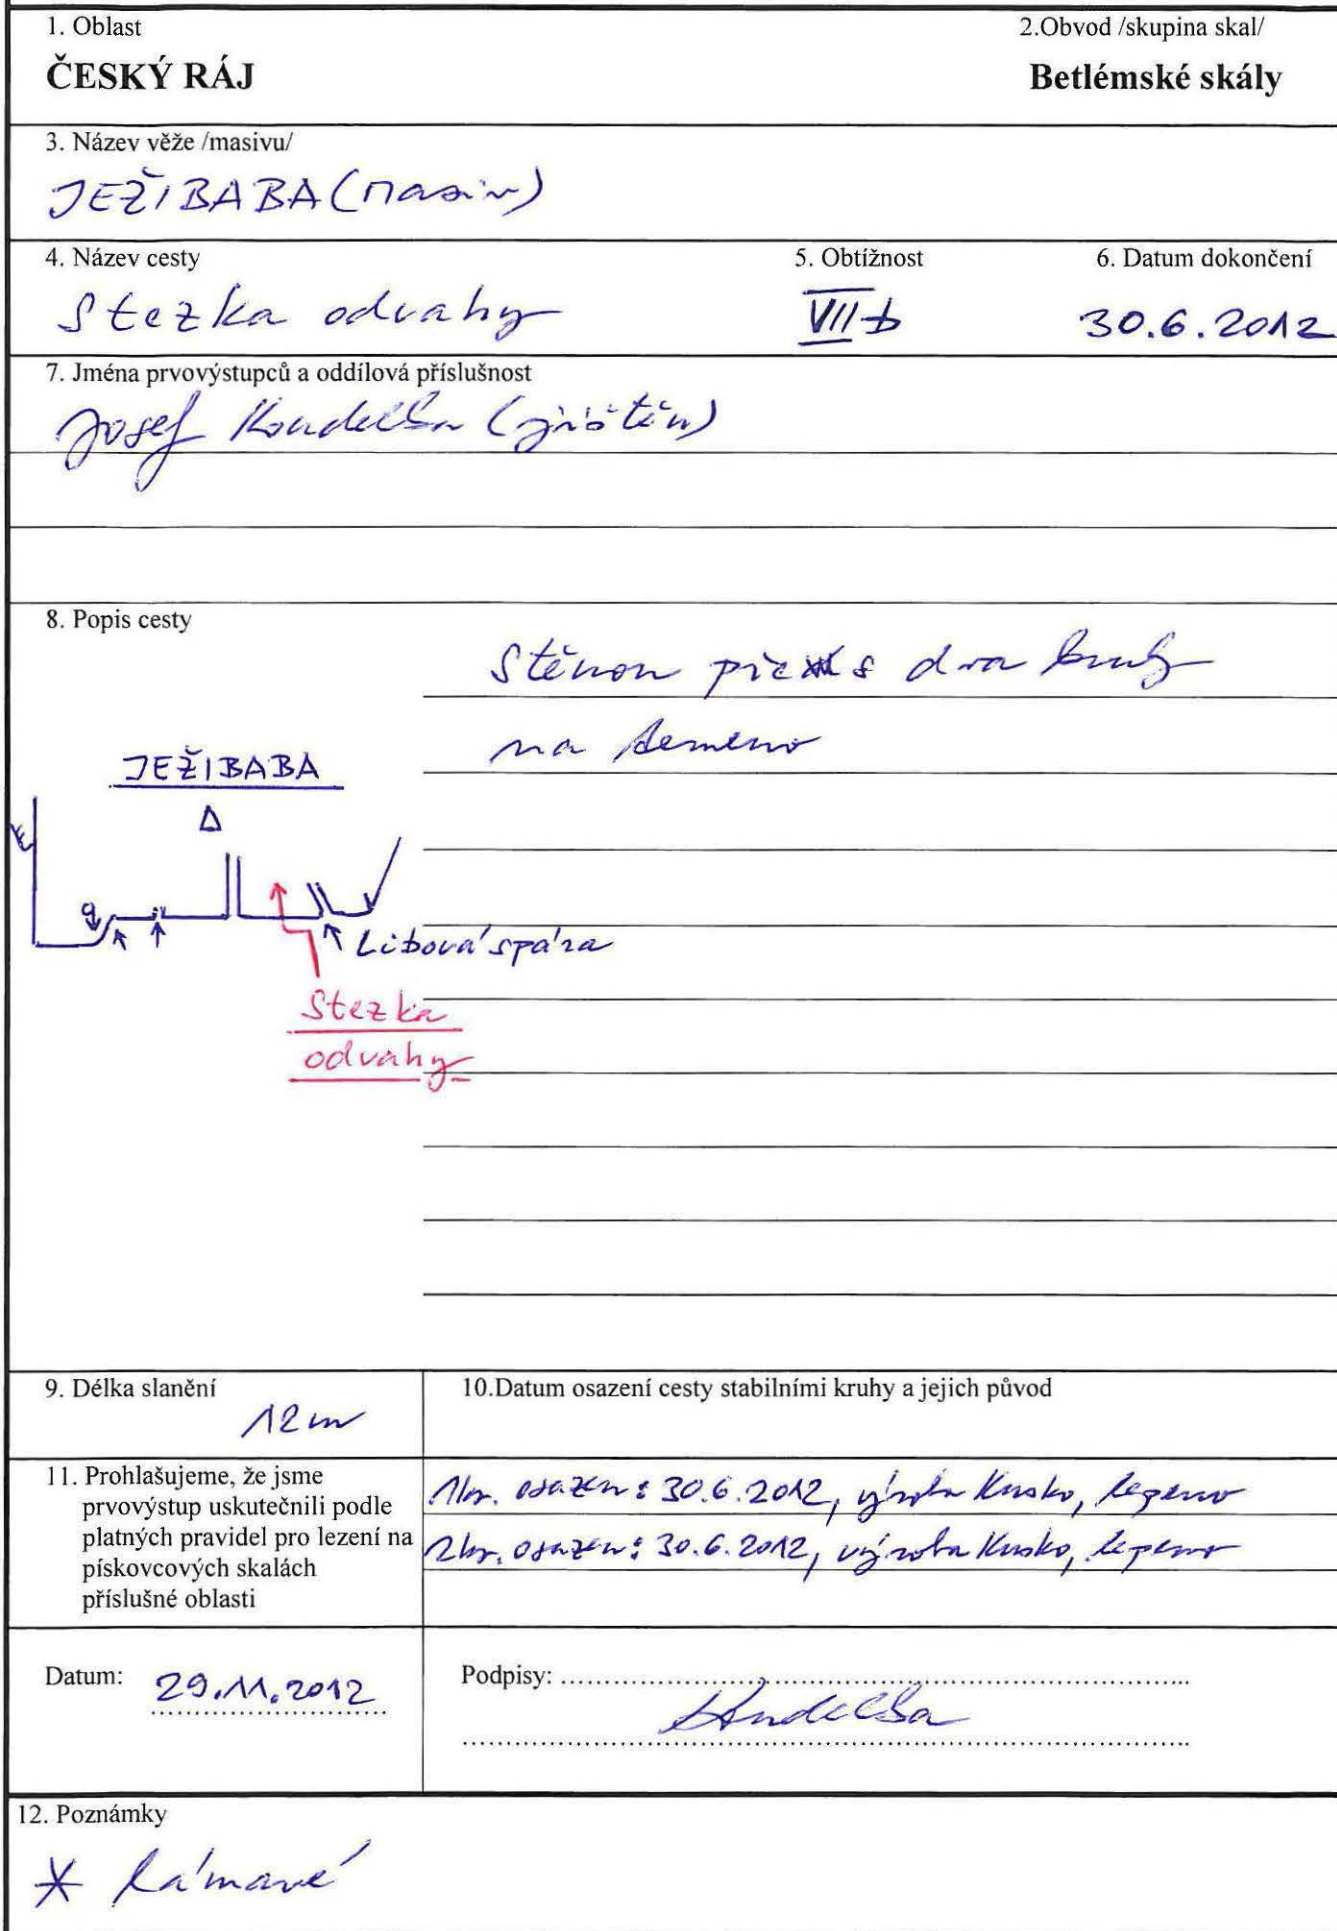 1. Oblast
2.Obvod /skupina skal/
ČESKÝ RÁJ
Betlémské skály
3. Název věže /masivu/
JEŽIBABA (masiv)
4. Název cesty
5. Obtížnost
6. Datum dokončení
Stezka odvahy
VIIb
30.6.2012
7. Jména prvovýstupců a oddílová příslušnost
Josef Kondelka (jištěn)
8. Popis cesty
Stěnou přes dva kruhy
na temeno
JEŽIBABA
Libová spára
Stezka
odvahy
9. Délka slanění
12m
10.Datum osazení cesty stabilními kruhy a jejich původ
11. Prohlašujeme, že jsme
prvovýstup uskutečnili podle
platných pravidel pro lezení na
pískovcových skalách
příslušné oblasti
1kr. osazen: 30.6.2012, výroba Kusko, lepeno
2kr. osazen: 30.6.2012, výroba Kusko, lepeno
Datum: 29.11.2012
Podpisy:
Kondelka
12. Poznámky
* lámavé